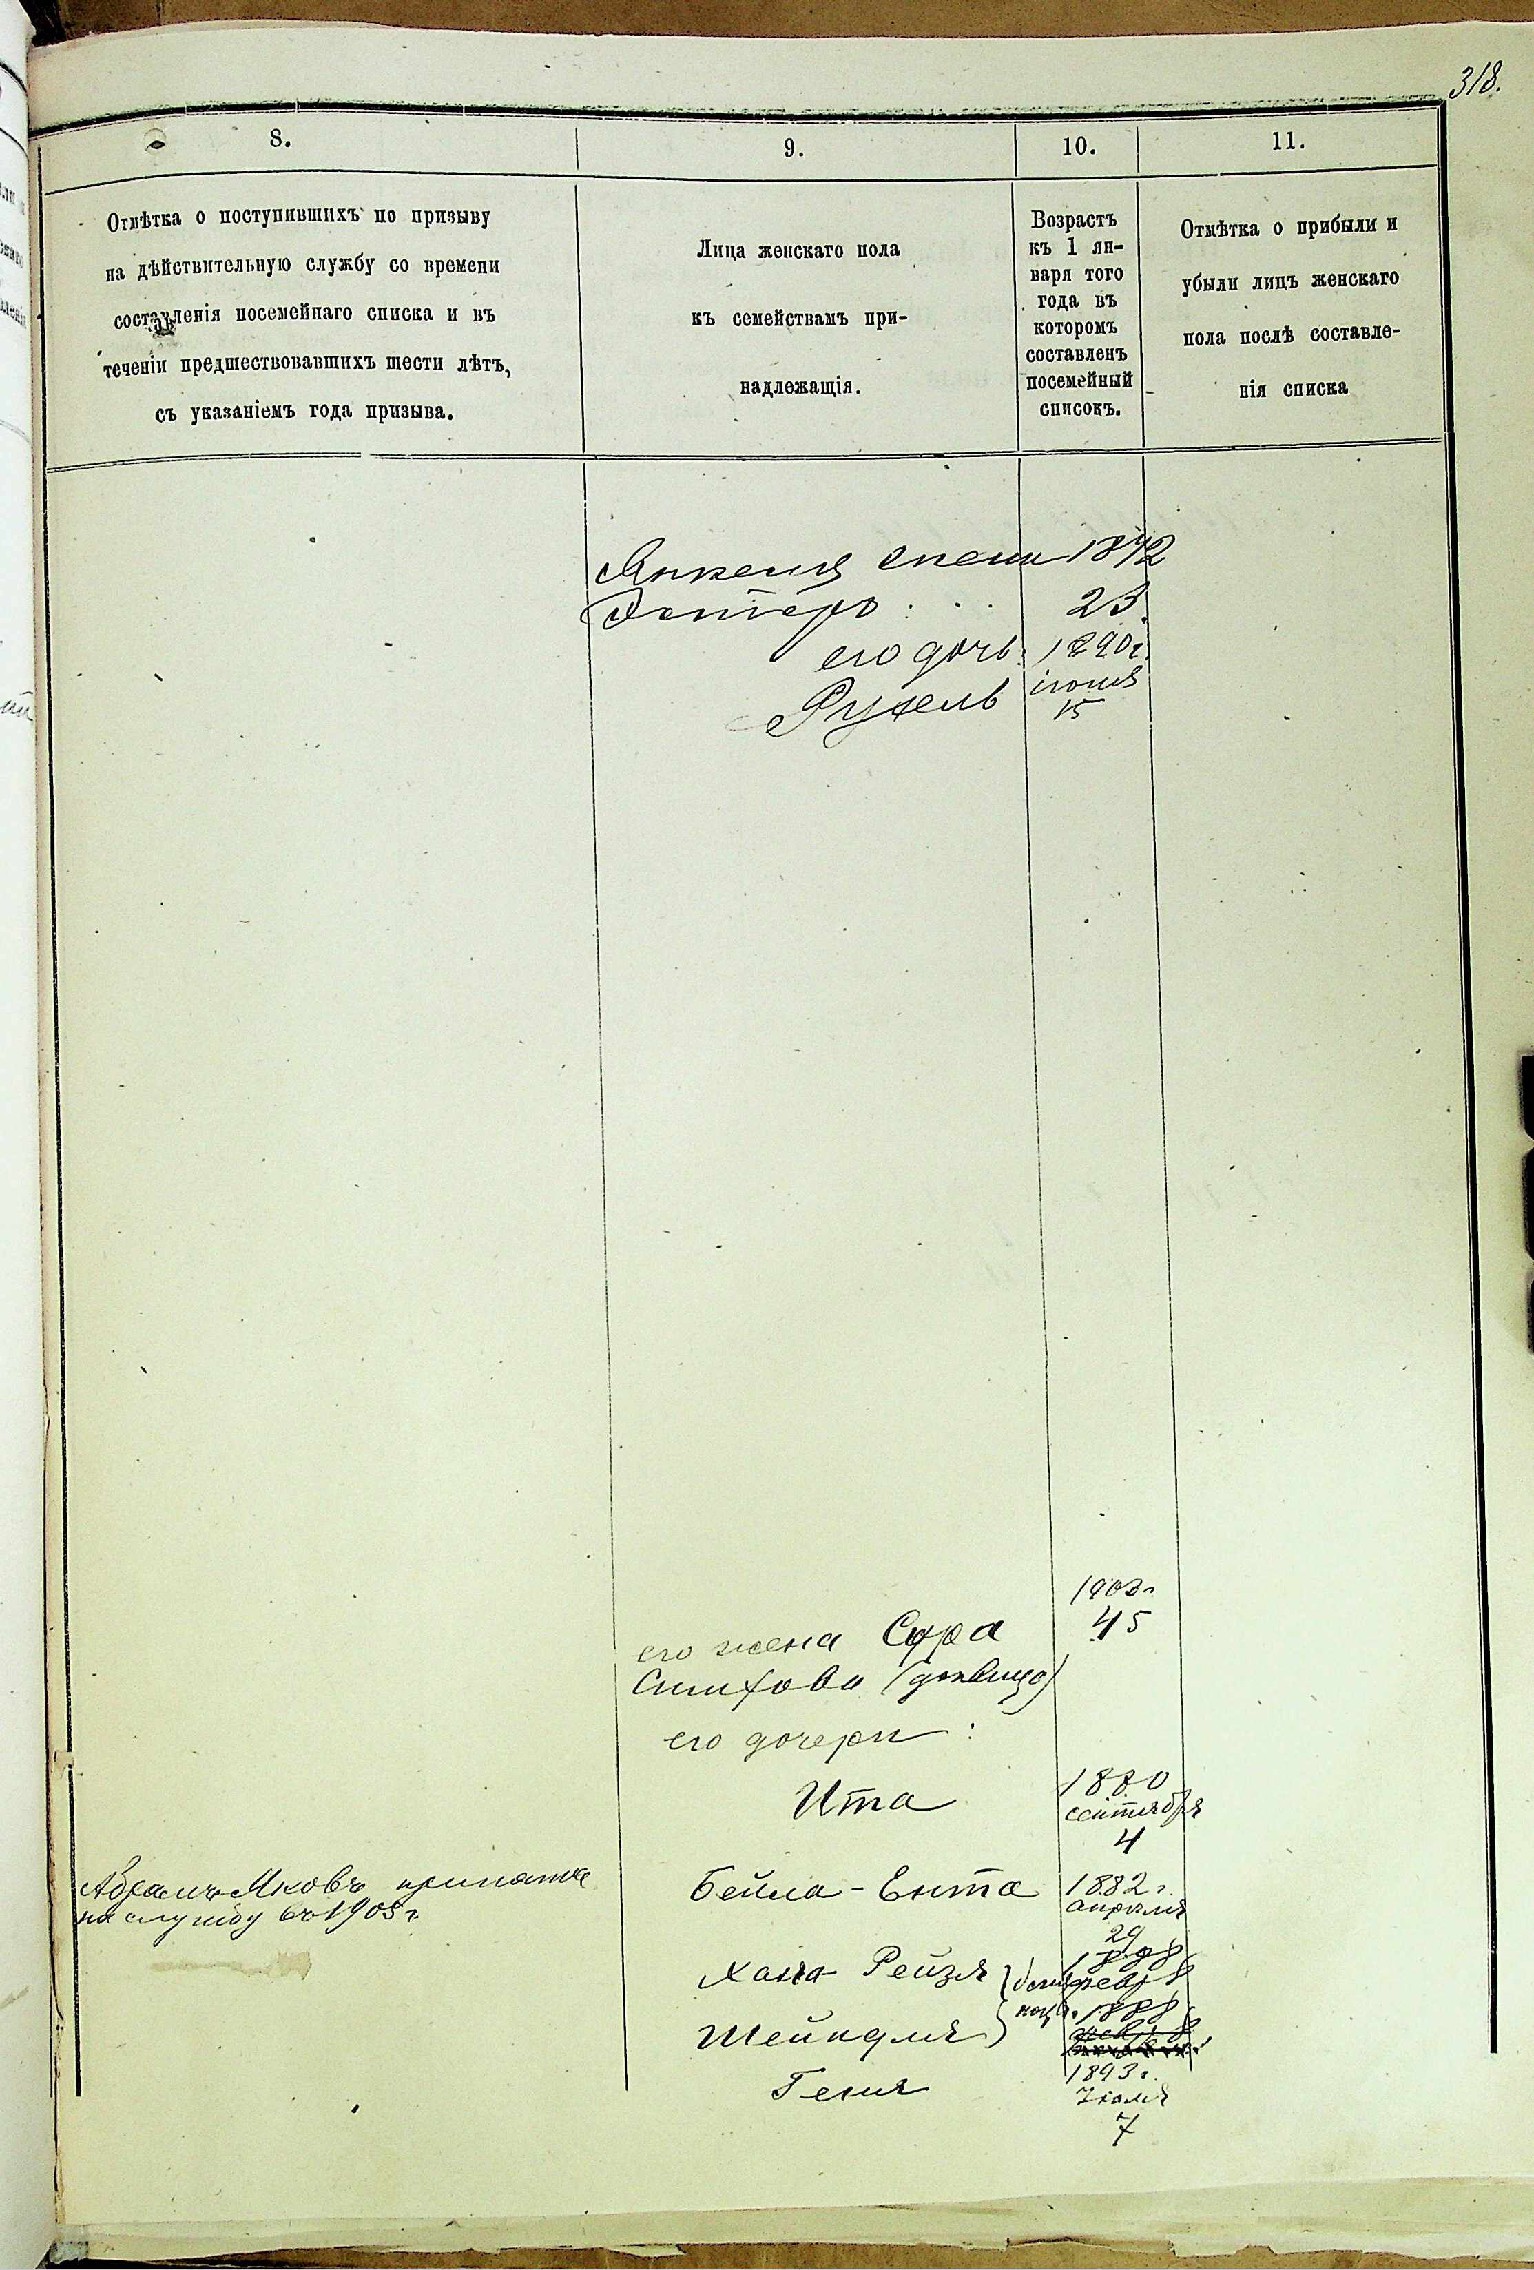 318.
8.
9.
10.
11.
Отмѣтка о поступившихъ по призыву
на дѣйствительную службу со времени
составленія посемейнаго списка и въ
теченіи предшествовавшихъ шести лѣтъ,
съ указаніемъ года призыва.
Лица женскаго пола
къ семействамъ при-
надлежащія.
Возрастъ
къ 1 ян-
варя того
года въ
которомъ
составленъ
посемейный
списокъ.
Отмѣтка о прибыли и
убыли лицъ женскаго
пола послѣ составле-
нія списка
Янкеля жена
23
его дочь: 1890г.
Рухель іюля
15
1903г
его жена Сура 45
его дочери:
Ита 1880
сентября
4
Бейла-Ента 1882г.
апрѣля
29
Абрамъ Яковъ принятъ
на службу въ 1905 г
Хана Рейзя
Шейндля 1888
Геня 1893г.
Іюля
7